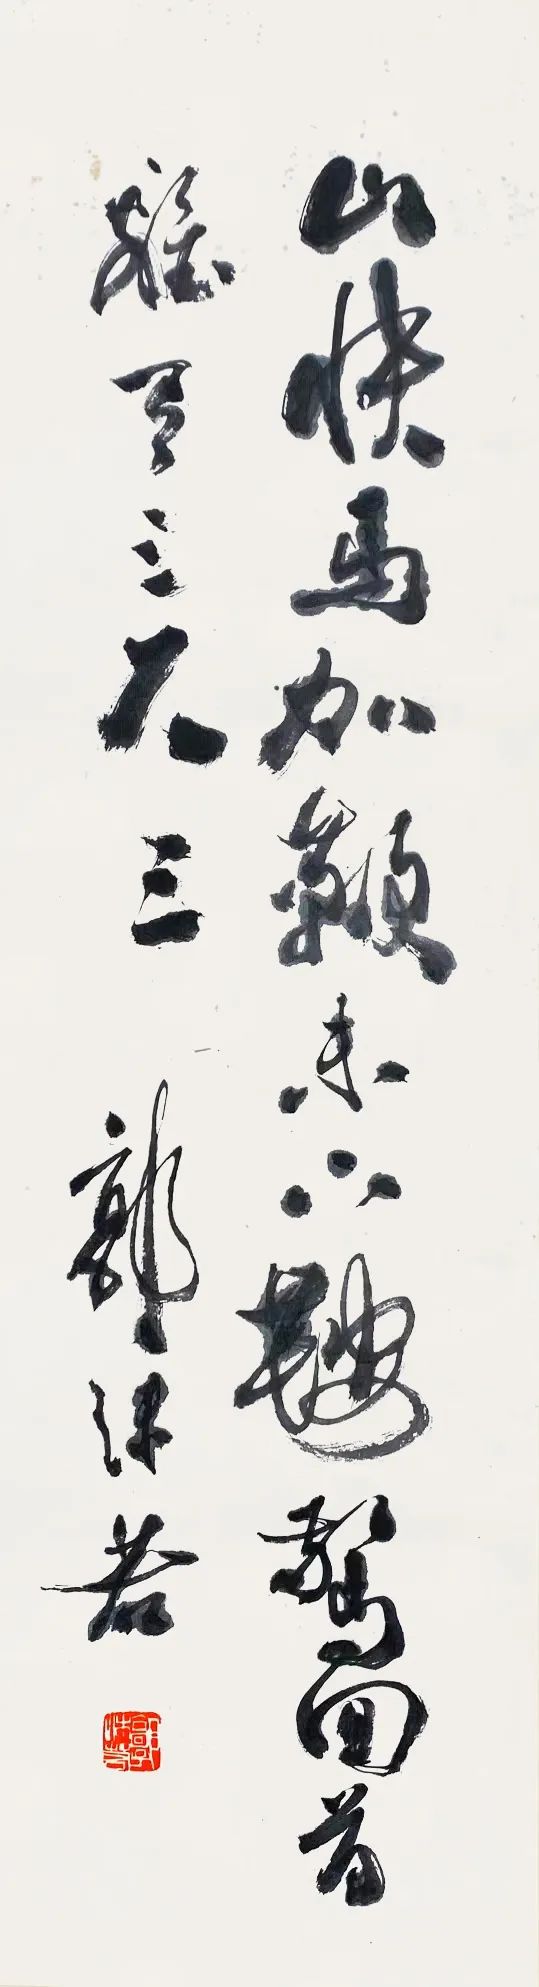 山快馬加鞭未下鞍驚回首
離天三尺三 郭沫若